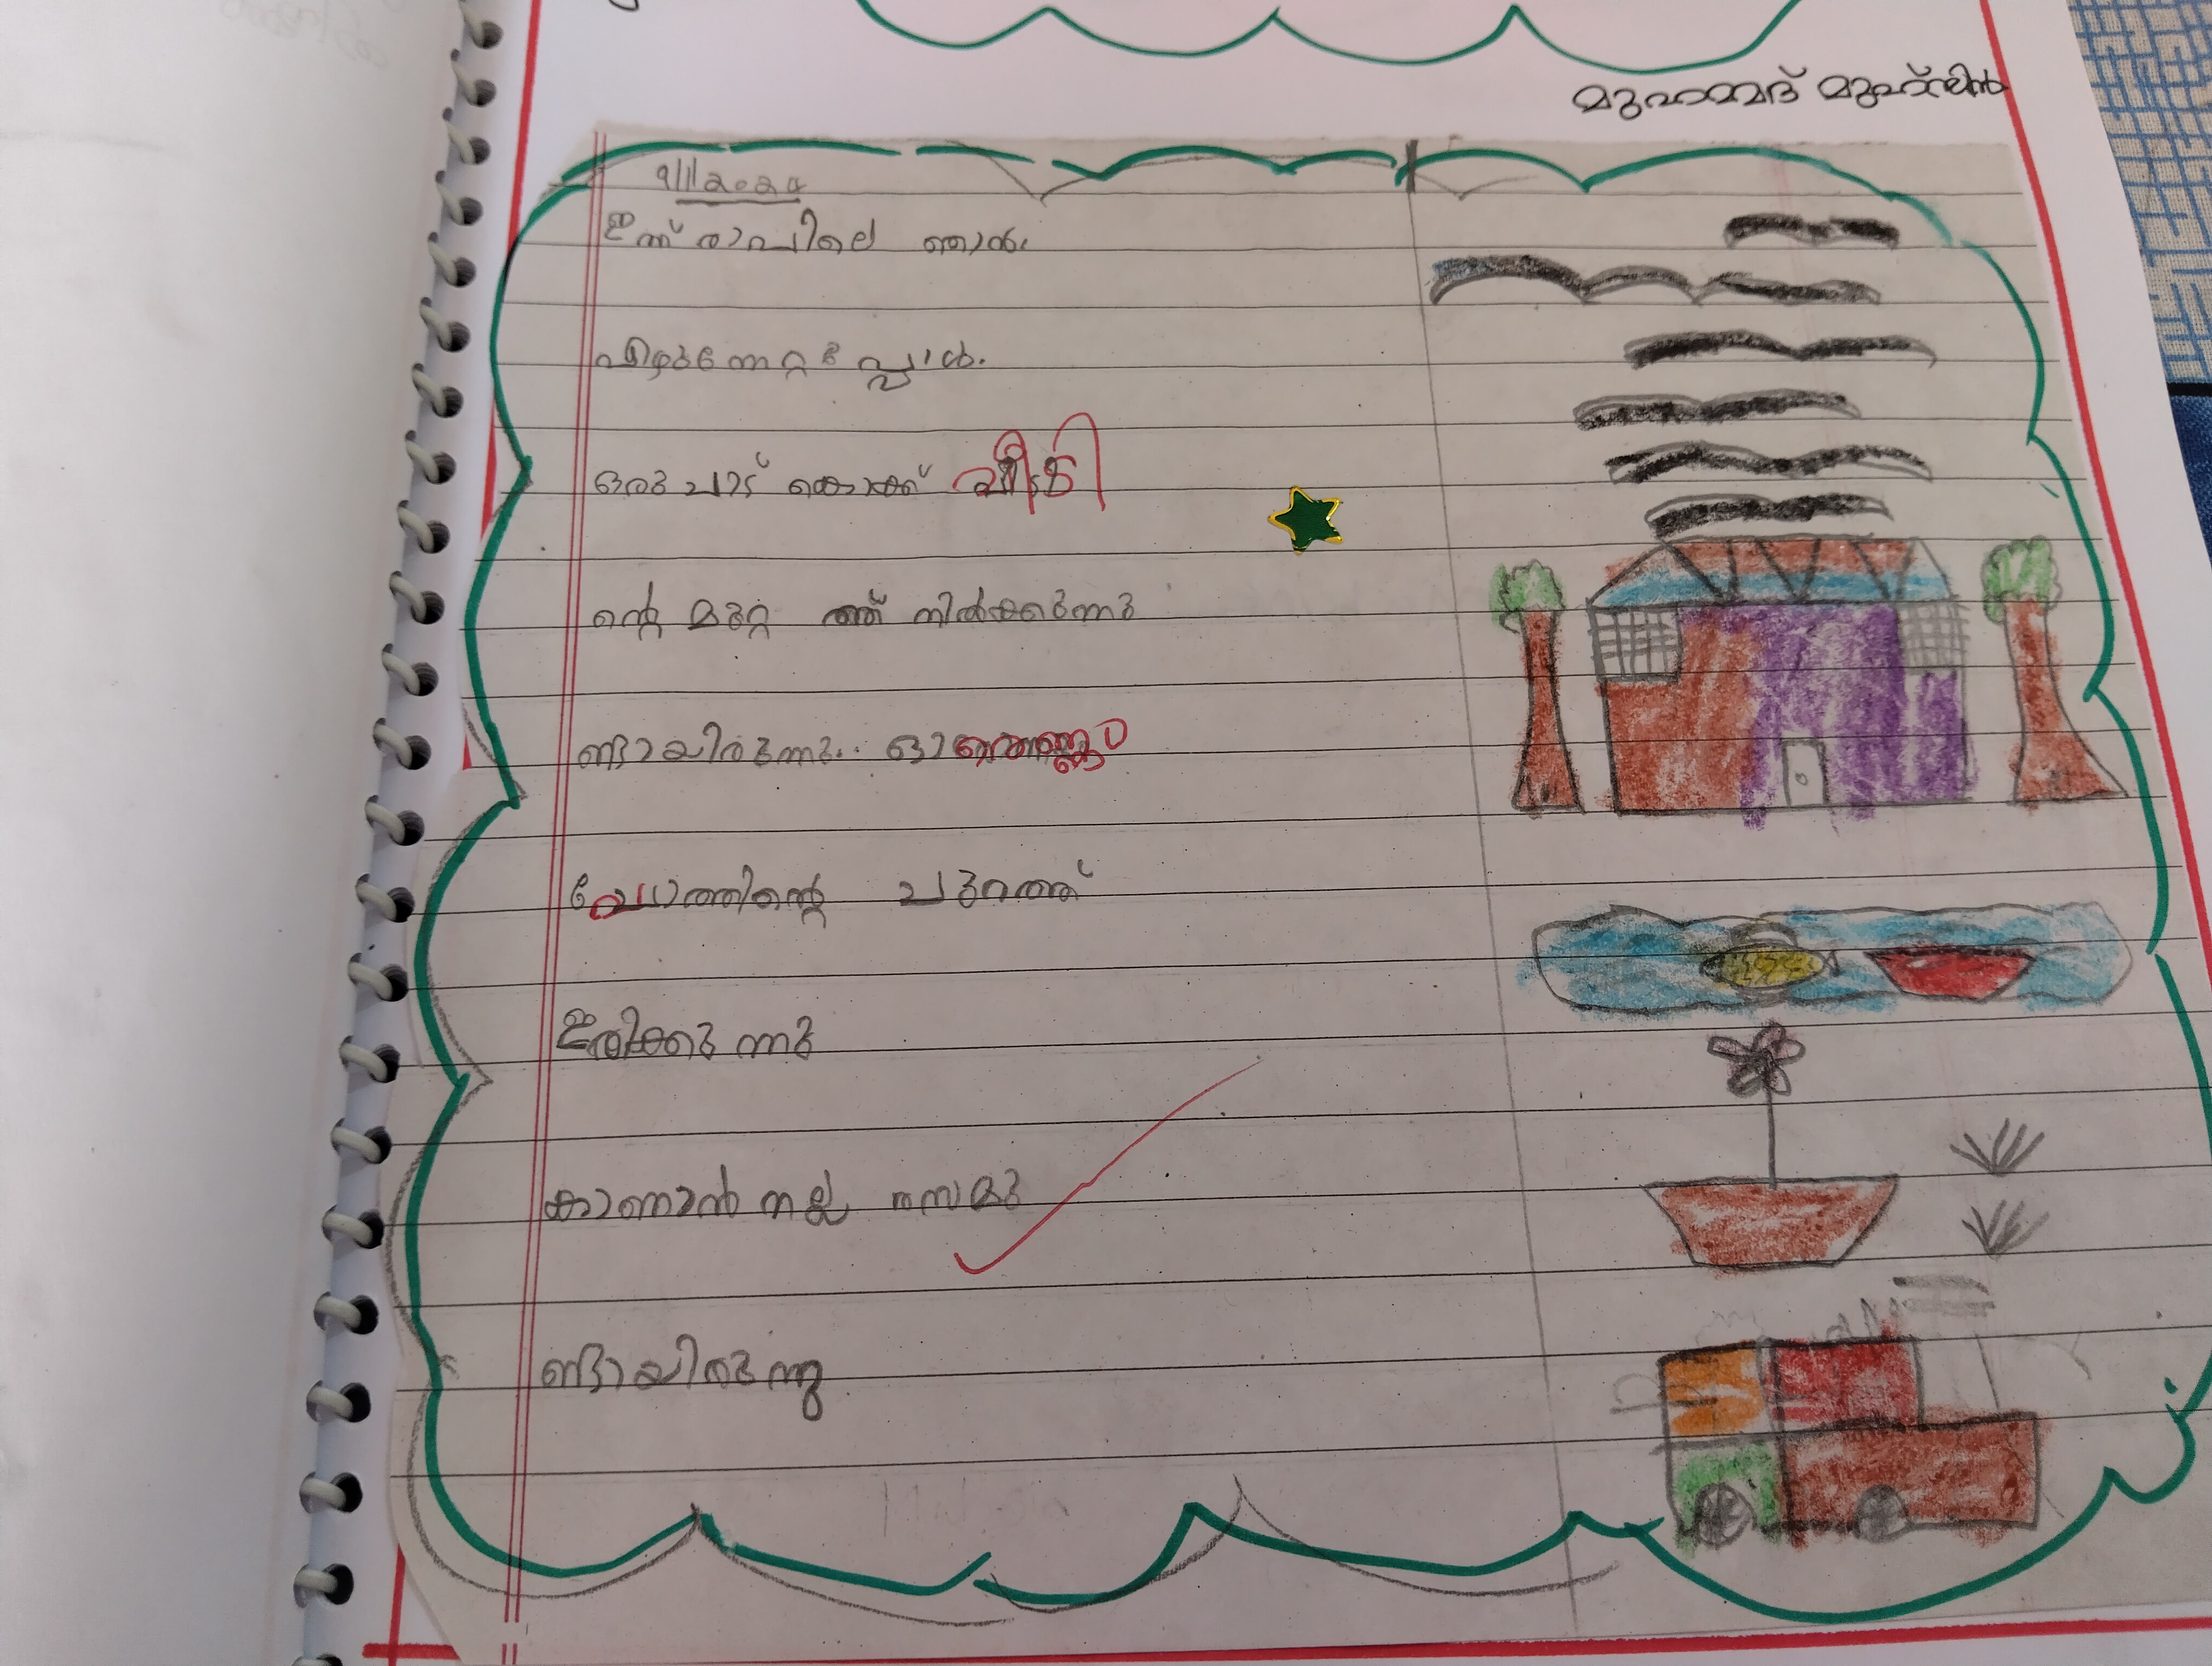 മുഹമ്മദ് മുഹ്സിൻ
9/11/2024
ഇന്ന് രാവിലെ ഞാൻ.
എഴുന്നേറ്റപ്പോൾ.
ഒരുപാട് കൊക്ക് വീടി
ന്റെ മുറ്റത്ത് നിൽക്കുന്നു
ണ്ടായിരുന്നു..
പോത്തിന്റെ പുറത്ത്
ഇരിക്കുന്നു
കാണാൻ നല്ല രസമു
ണ്ടായിരുന്നു